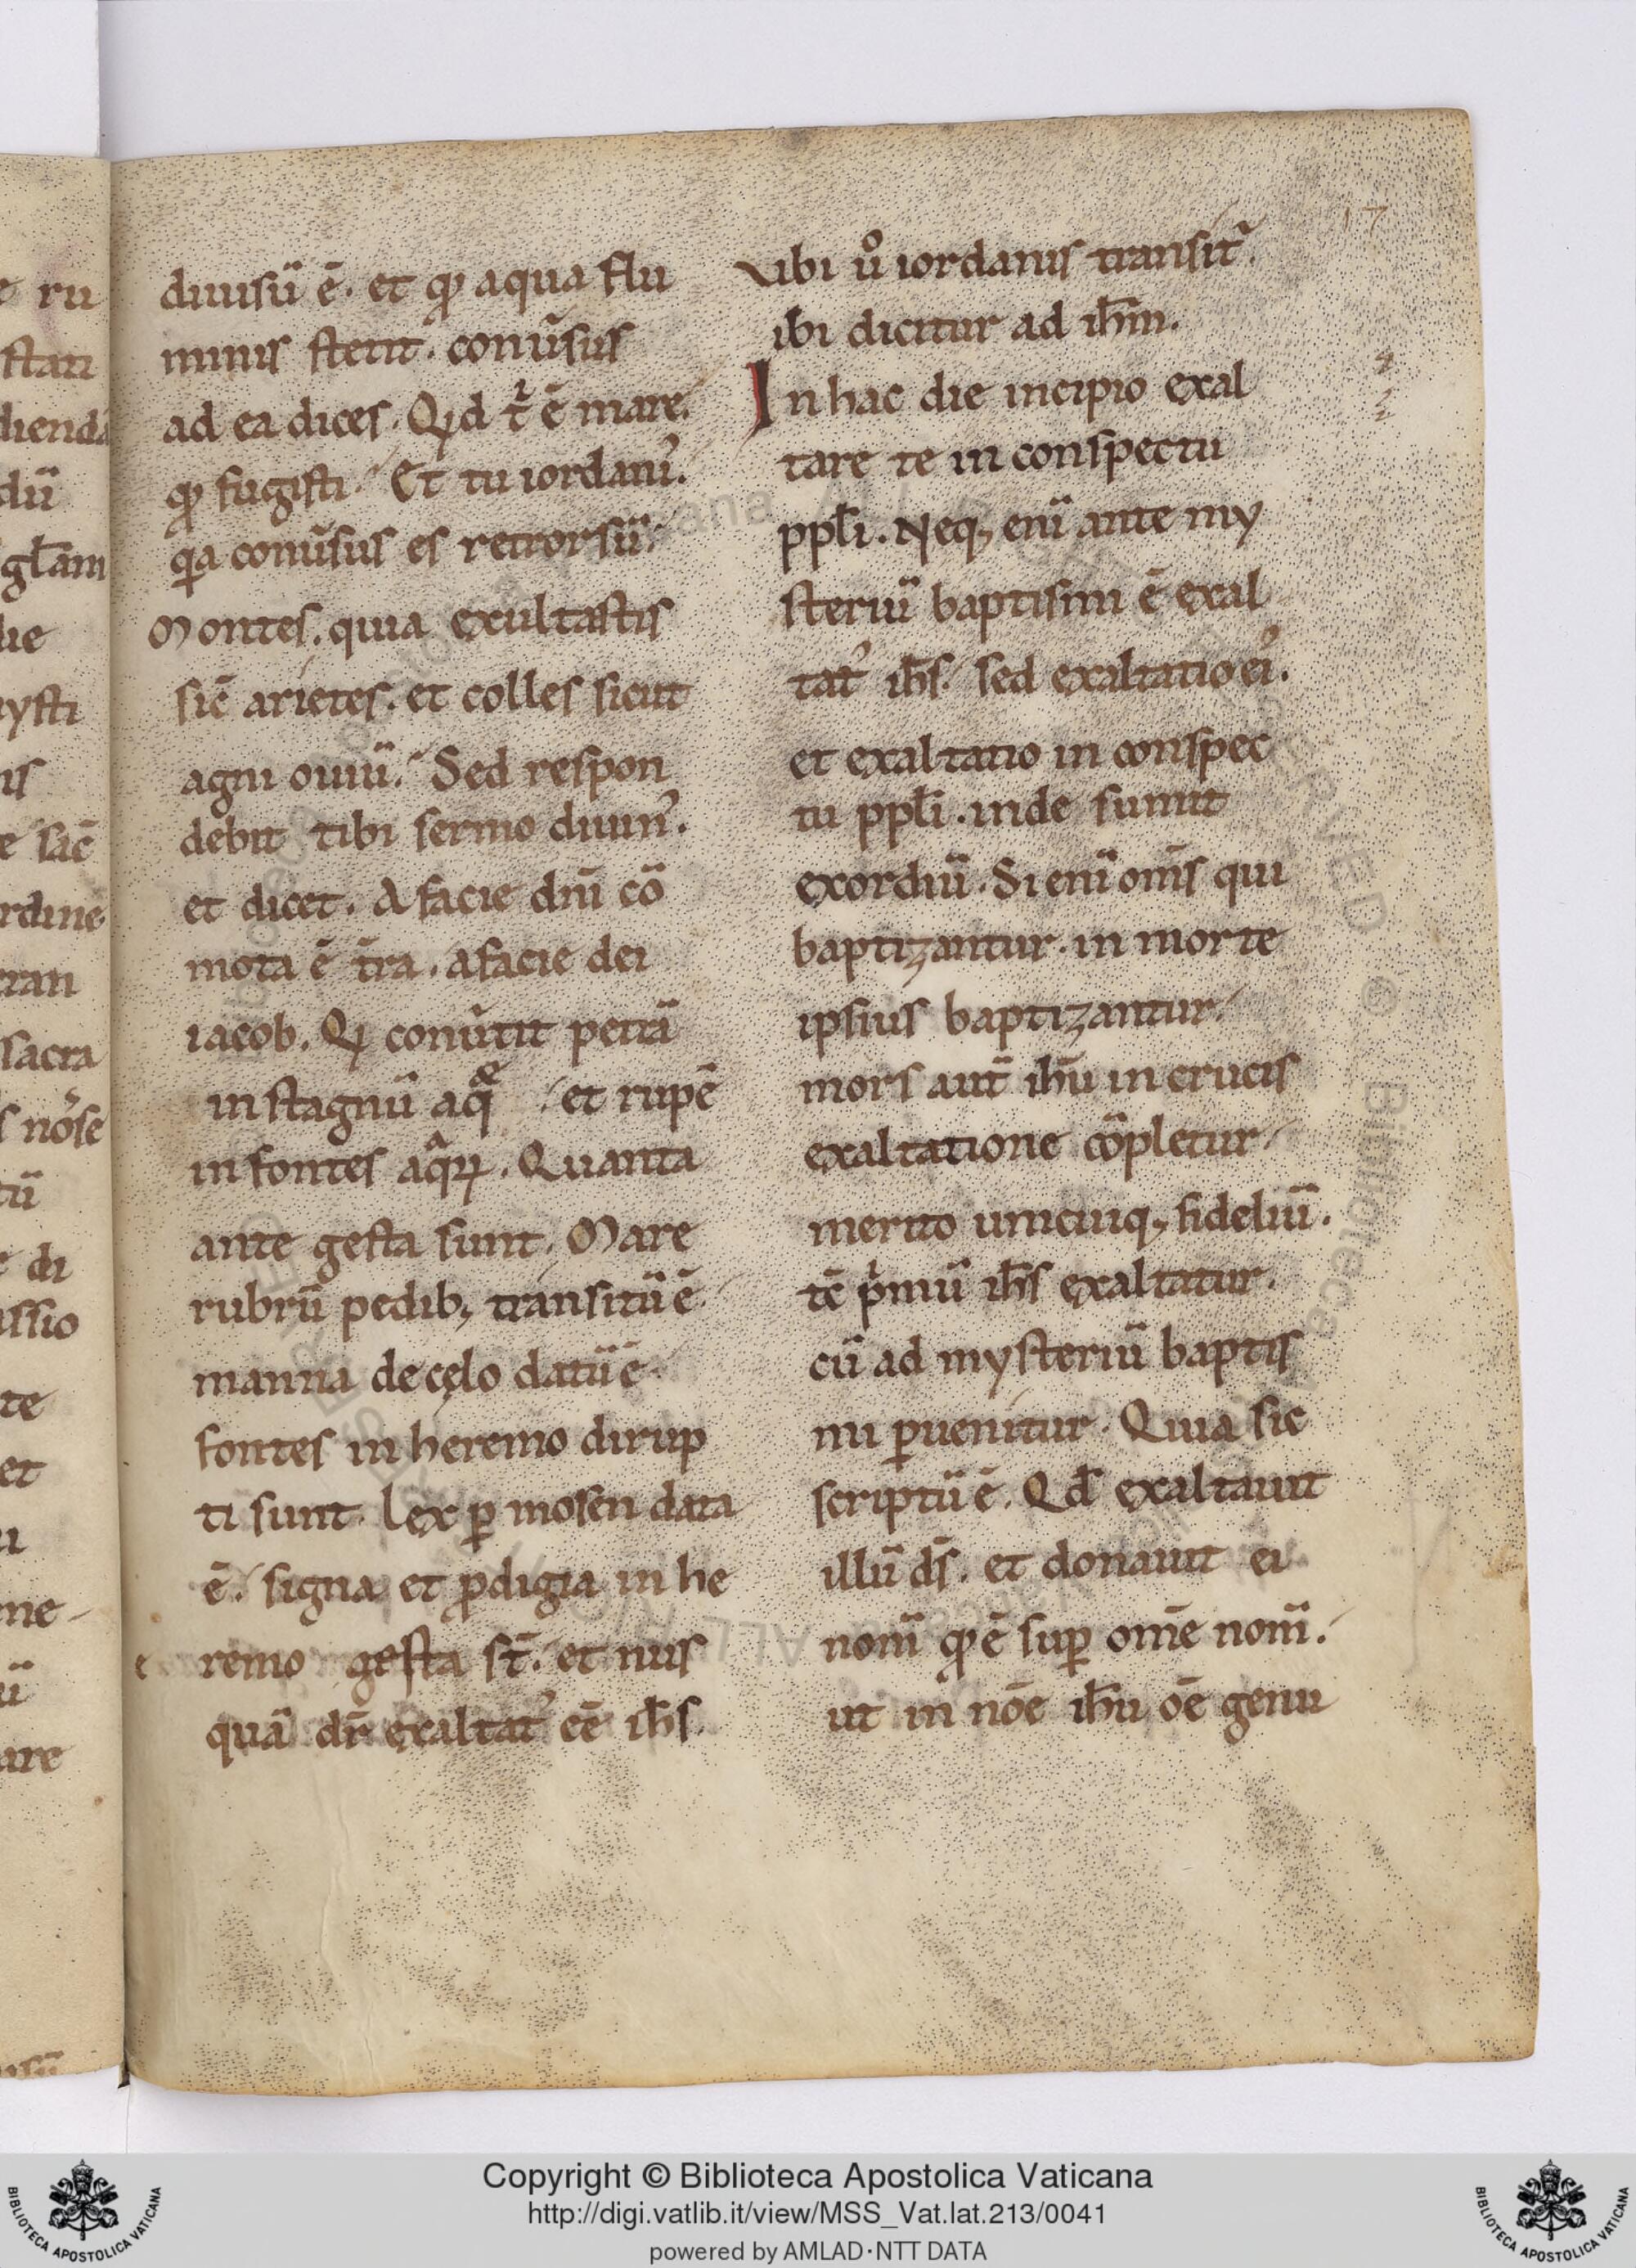 17
diuisū ē. et qđ aqua flu
minis stetit. conūsus
ad ea dices. Qid t̄ ē mare.
qđ fugisti. Et tu iordanꝰ.
qia conūsus es retrorsū.
Montes. quia exultastis
sic̄ arietes. et colles sicut
agni ouiū. Sed respon
debit tibi sermo diuinꝰ.
et dicet. A facie dn̄i cō
mota ē t̄ra. a facie dei
iacob. Qi conūtit petrā
in stagnū aquę. et rupē
in fontes aqꝝ. Quanta
ante gesta sunt. Mare
rubrū pedibꝫ transitū ē
manna de cęlo datū ē.
fontes in heremo dirup
ti sunt. lex ꝑ mosen data
ē. signa et ꝓdigia in he
remo gesta st̄. et nus
quā dr̄ exaltatꝰ eē ih̄s.
Vibi uo iordanis transit̄.
ibi dicitur ad ih̄m.
In hac die incipio exal
tare te in conspectu
ppl̄i. Neqꝫ eni̅ ante my
steriū baptismi ē exal
tatꝰ ih̄s. sed exaltatio eiꝰ.
et exaltatio in conspec
tu ppl̄i. inde sumit
exordiū. Si eni̅ om̄s qui
baptizantur. in morte
ipsius baptizantur.
mors aut̄ ih̄u in crucis
exaltatione cōpletur.
merito unicuiqꝫ fideliū.
tc̄ pimū ih̄s exaltatur.
cū ad mysteriū baptis
mi ꝑuenitur. Quia sic
scriptū ē. Qđ exaltauit
illū d̄s. et donauit ei
nom̄ qđ ē suꝑ om̄e nom̄.
ut in nōe ih̄u oē genu
Copyright © Biblioteca Apostolica Vaticana
http://digi.vatlib.it/view/MSS_Vat.lat.213/0041
powered by AMLAD·NTT DATA
BIBLIOTECA APOSTOLICA VATICANA
BIBLIOTECA APOSTOLICA VATICANA